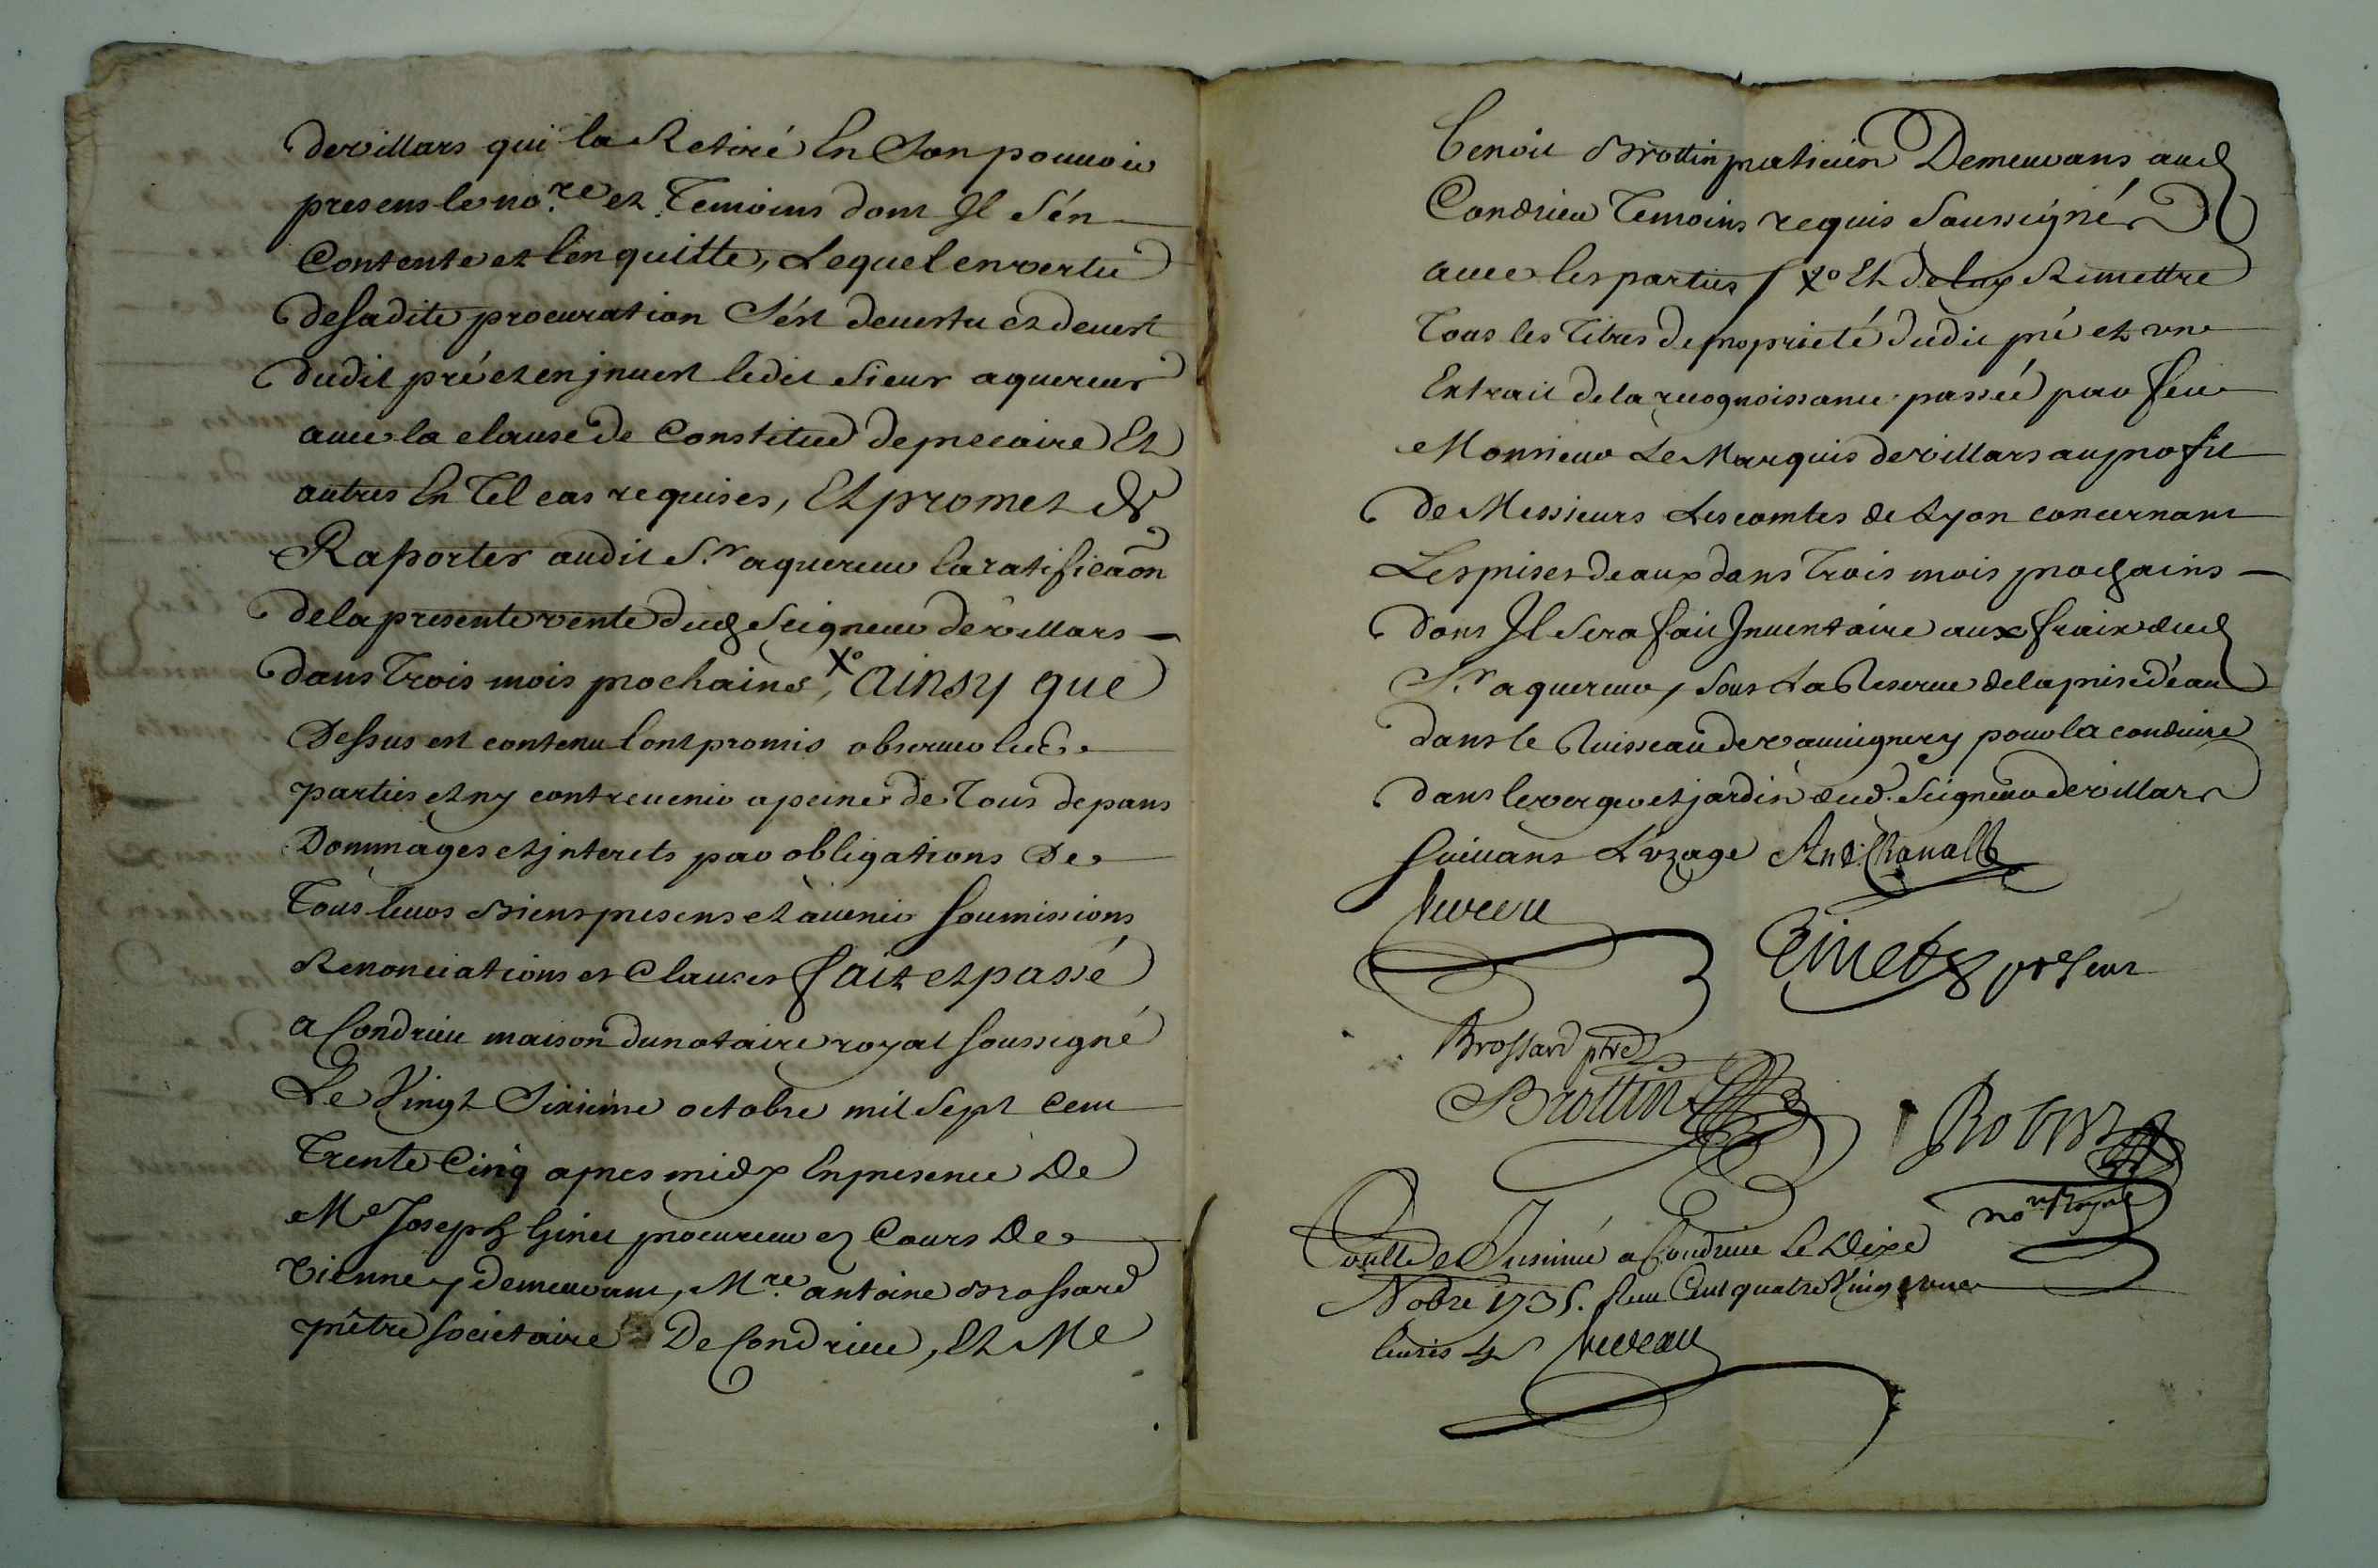 devillars qui la Retiré En Son pouvoir
presens le no.re et Temoins dont Il s'én
Contente et l'en quitte, Lequel en vertu
de sadite procuration S'ést devestu et devest
dudit pré et en jnvest ledit Sieur aquereur
avec la clause de Constitud de precaire Et
autres En Tel cas requises, Et promet de
Raporter audit S.r aquereur la ratificaon
de la presente vente dud Seigneur de villars
dans Trois mois prochains, Xo ainsy que
Dessus est contenu l'ont promis observer lesd.
parties et ny contrevenir a peine de Tous depans
Dommages et jnterets par obligations De
Tous leurs Biens presens et avenir soumissions
Renonciations et Clauses fait et passé
a Condrieu maison du notaire royal soussigné
Le Vingt Sixiéme octobre mil Sept Cent
Trente Cinq apres midy En presence De
Me Joseph Ginet procureur ez Cours De
Vienne y demeurant, M.re antoine Brossard
prêtre societaire De Condrieu, Et Me
Benoit Brottin praticien Demeurans aud
Condrieu Temoins requis Soussignés
avec les parties / Xo Et de luy Remettre
Tous les Titres de proprieté dudit pré et vn
Extrait de la recognoissance passée par feu
Monsieur Le Marquis de villars au profit
de Messieurs Les comtes de Lyon concernant
Les prises deaux dans Trois mois prochains
dont Il Sera fait Jnventaire aux fraix dud
S.r aquereur, sous La Reserve de la prise d'éau
dans le Ruisseau de vauvignery pour la conduire
dans le verger et jardin dud. Seigneur de villars
suivant L'vzage
Ginet
Brossard ptre
Brottin
no.re Royal
Conllé et Insinué a Condrieu le dixe
Nobre 1735. Reçu Cent quatre Vingt